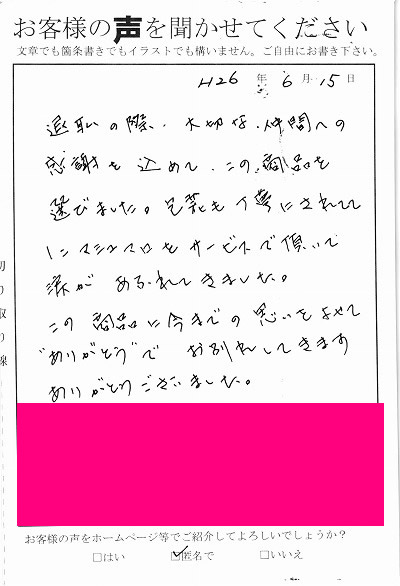 お客様の声を聞かせてください
文章でも箇条書きでもイラストでも構いません。ご自由にお書き下さい。
H26年6月15日
退職の際、大切な仲間への
感謝を込めて、この商品を
選びました。包装も丁寧にされてて
マシュマロをサービスで頂いて
涙があふれてきました。
この商品に今までの思いをよせて
"ありがとう"でお別れしてきます
ありがとうございました。
切り取り線
お客様の声をホームページ等でご紹介してよろしいでしょうか？
□はい ☑匿名で □いいえ